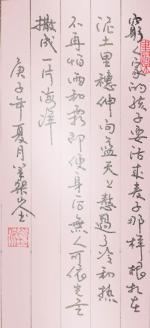 穷人家的孩子要活成麦子那样根扎在
泥土里穗伸向蓝天熬过了冷和热
不再怕雨和霜即使身后无人可依也要
撒成一片海洋
庚子年夏月